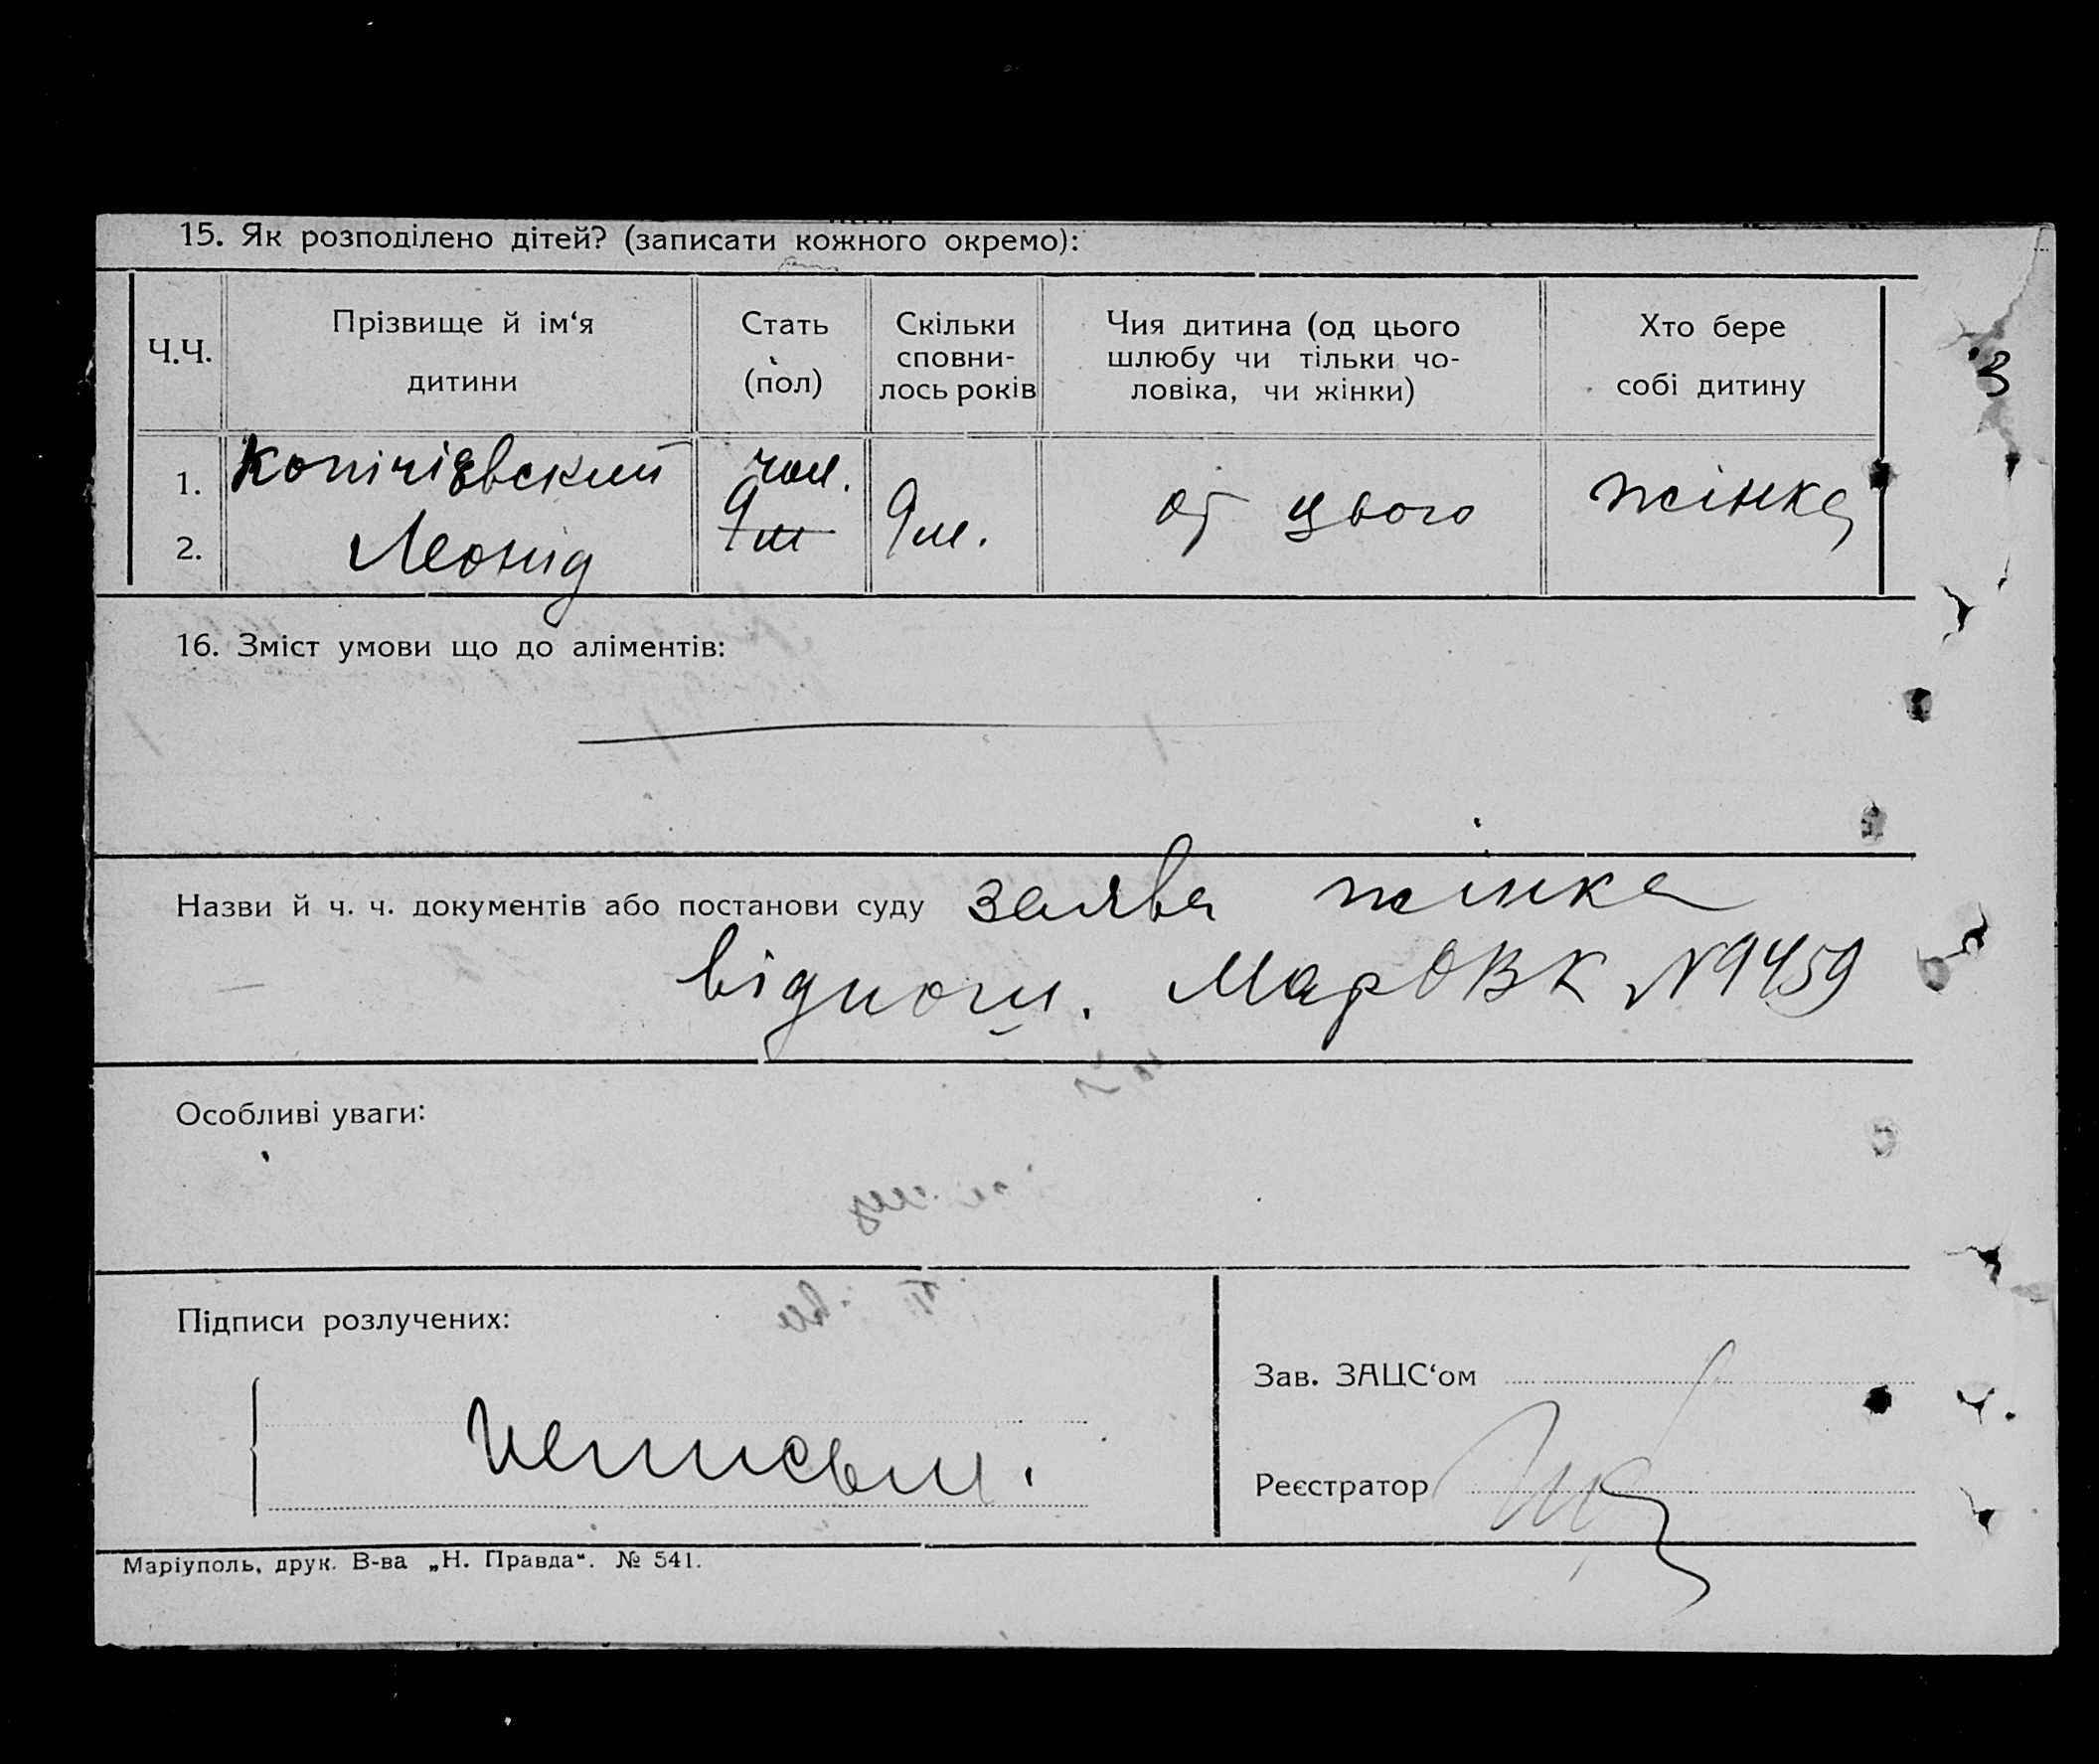 15. Як розподілено дітей? (записати кожного окремо):
Ч.Ч.
Прізвище й ім‘я
дитини
Стать
(пол)
Скільки
сповни-
лось років
Чия дитина (од цього
шлюбу чи тільки чо-
ловіка, чи жінки)
Хто бере
собі дитину
3
1.
Копічієвский
чол.
2.
Леонід
9 м
9 м.
от цього
жінка
16. Зміст умови що до аліментів:
Назви й ч. ч. документів або постанови суду заява жінка
віднош. МарОВК N 9459
Особливі уваги:
Підписи розлучених:
Зав. ЗАЦС‘ом
Реєстратор
Маріуполь, друк. В-ва „Н. Правда“. № 541.